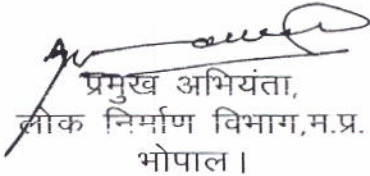 प्रमुख अभियंता,
लोक निर्माण विभाग,म.प्र.
भोपाल।